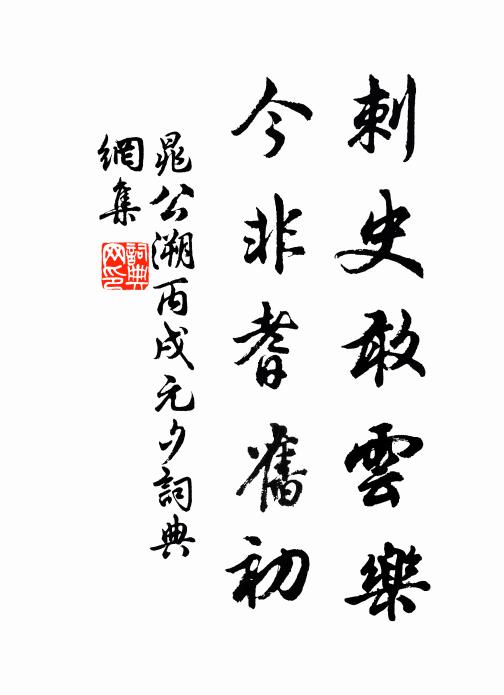 刺史敢雲樂
今非耆舊初
晁公溯丙戌元夕詞典
網集
詞典
网印